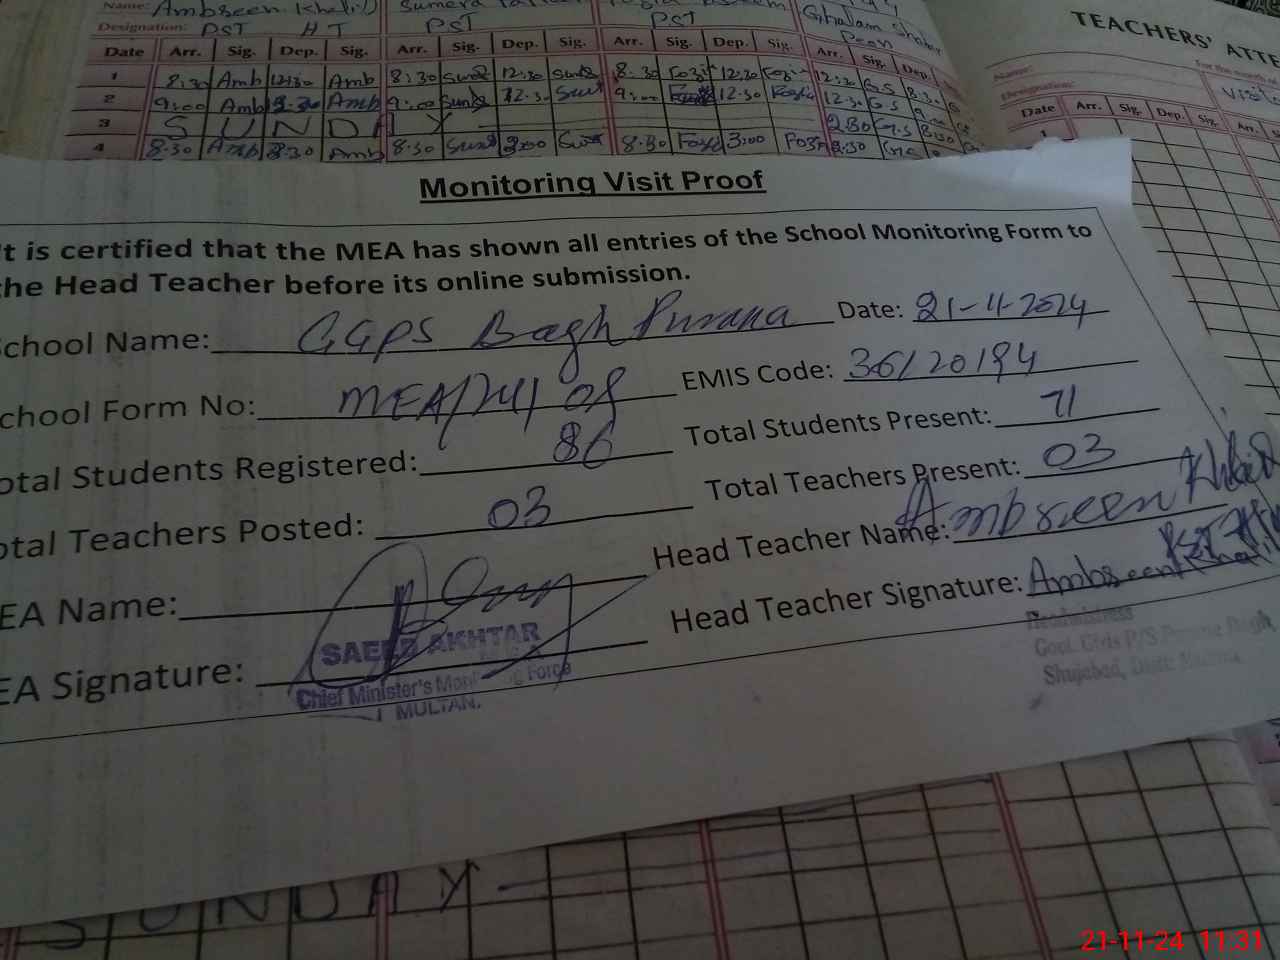 Name: Ambseen Khalil Sumera
Designation: PST HT PST PST
Date Arr. Sig. Dep. Sig. Arr. Sig. Dep. Sig. Arr. Sig. Dep. Sig. Arr. Sig. Dep.
1 8:30 Amb 12:30 Amb 8:30 12:30 8:30 12:30 12:30 GS 8:30
2 9:00 Amb Amb 9:00 12:30 9:00 12:30 12:30 GS
3 SUNDAY
4 8:30 Amb 3:30 Amb 8:30 3:00 8:30 3:00
TEACHERS' ATTE
Name:
For the month of
Designation:
Date Arr. Sig. Dep. Sig. Arr.
1
Monitoring Visit Proof
t is certified that the MEA has shown all entries of the School Monitoring Form to
the Head Teacher before its online submission.
School Name: GGPS Bagh Purana Date: 21-11-2024
School Form No: MEA/241 08 EMIS Code: 36120194
otal Students Registered: 86 Total Students Present: 71
otal Teachers Posted: 03 Total Teachers Present: 03
EA Name: Head Teacher Name: Ambseen Khalil
EA Signature: Head Teacher Signature: Ambseen Khalil
SAEED AKHTAR
Chief Minister's Monitoring Force
MULTAN.
Headmistress
Govt. Girls P/S Purana Bagh
Shujabad, Distt: Multan
SUNDAY
21-11-24 11:31